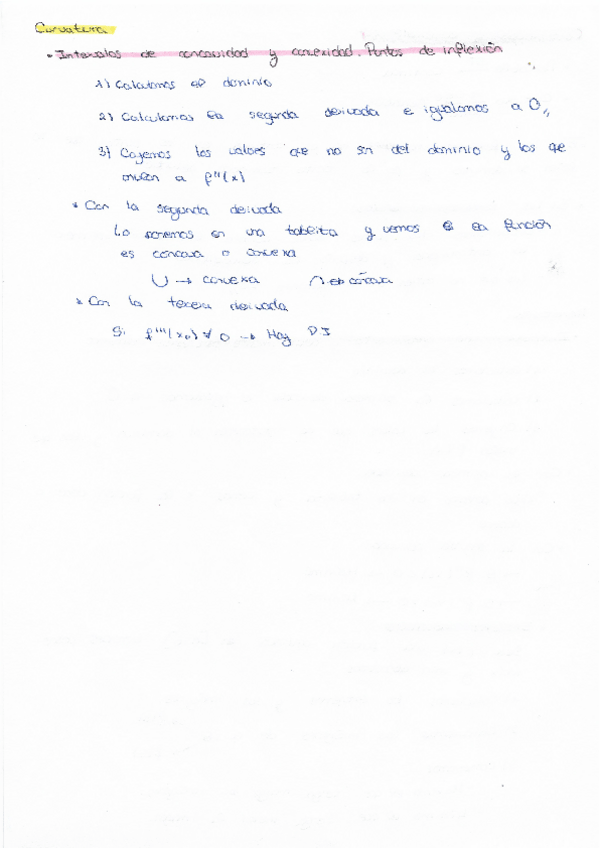 Curvatura
• Intervalos de concavidad y convexidad. Puntos de inflexión
1) Calculamos el dominio
2) Calculamos la segunda derivada e igualamos a 0,,
3) Cogemos los valores que no son del dominio y los que
anulen a f''(x)
* Con la segunda derivada
Lo ponemos en una tablita y vemos si la función
es concava o convexa
∪ → convexa ∩ → concava
* Con la tercera derivada
Si f'''(x₀) ≠ 0 → Hay P I